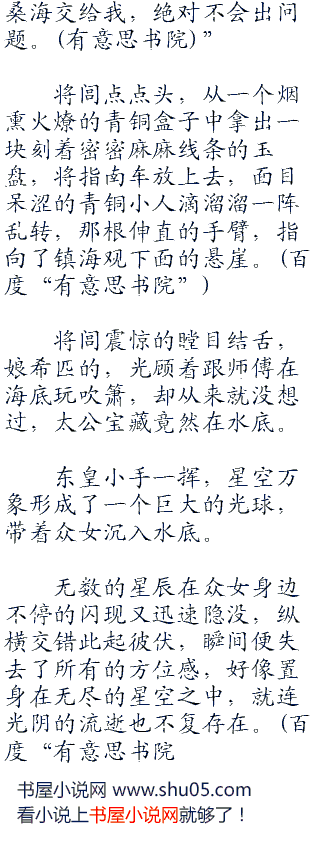 桑海交给我，绝对不会出问
题。(有意思书院)”
将闾点点头，从一个烟
熏火燎的青铜盒子中拿出一
块刻着密密麻麻线条的玉
盘，将指南车放上去，面目
呆涩的青铜小人滴溜溜一阵
乱转，那根伸直的手臂，指
向了镇海观下面的悬崖。(百
度“有意思书院”)
将闾震惊的瞠目结舌，
娘希匹的，光顾着跟师傅在
海底玩吹箫，却从来就没想
过，太公宝藏竟然在水底。
东皇小手一挥，星空万
象形成了一个巨大的光球，
带着众女沉入水底。
无数的星辰在众女身边
不停的闪现又迅速隐没，纵
横交错此起彼伏，瞬间便失
去了所有的方位感，好像置
身在无尽的星空之中，就连
光阴的流逝也不复存在。(百
度“有意思书院
书屋小说网 www.shu05.com
看小说上书屋小说网就够了！